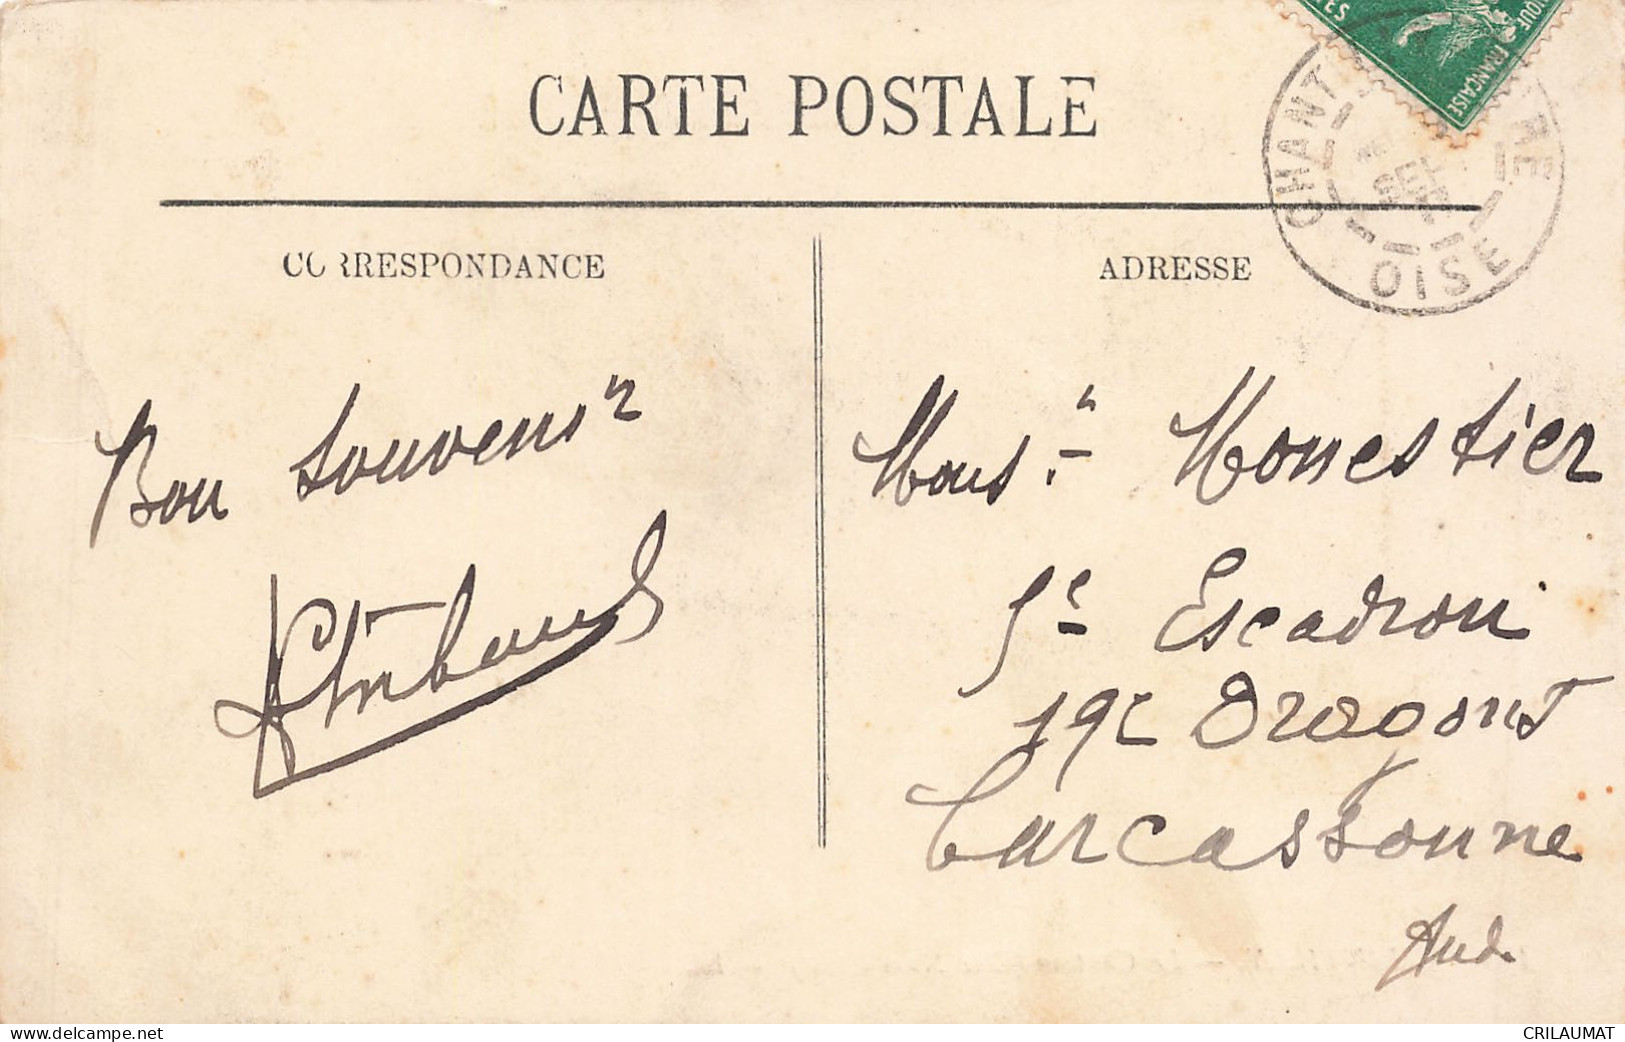 CARTE POSTALE
CORRESPONDANCE
ADRESSE
CHANT RE
SEPT
OISE
FRANÇAISE
Bon Souvenir
Monsr Monestier
5e Escadron
19e Dragons
Carcassonne
Aude
https://www.delcampe.net
CRILAUMAT